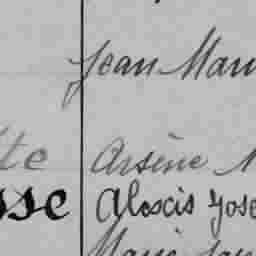 Jean Mau
te Arsène
sse Alexcis Jose
Marie